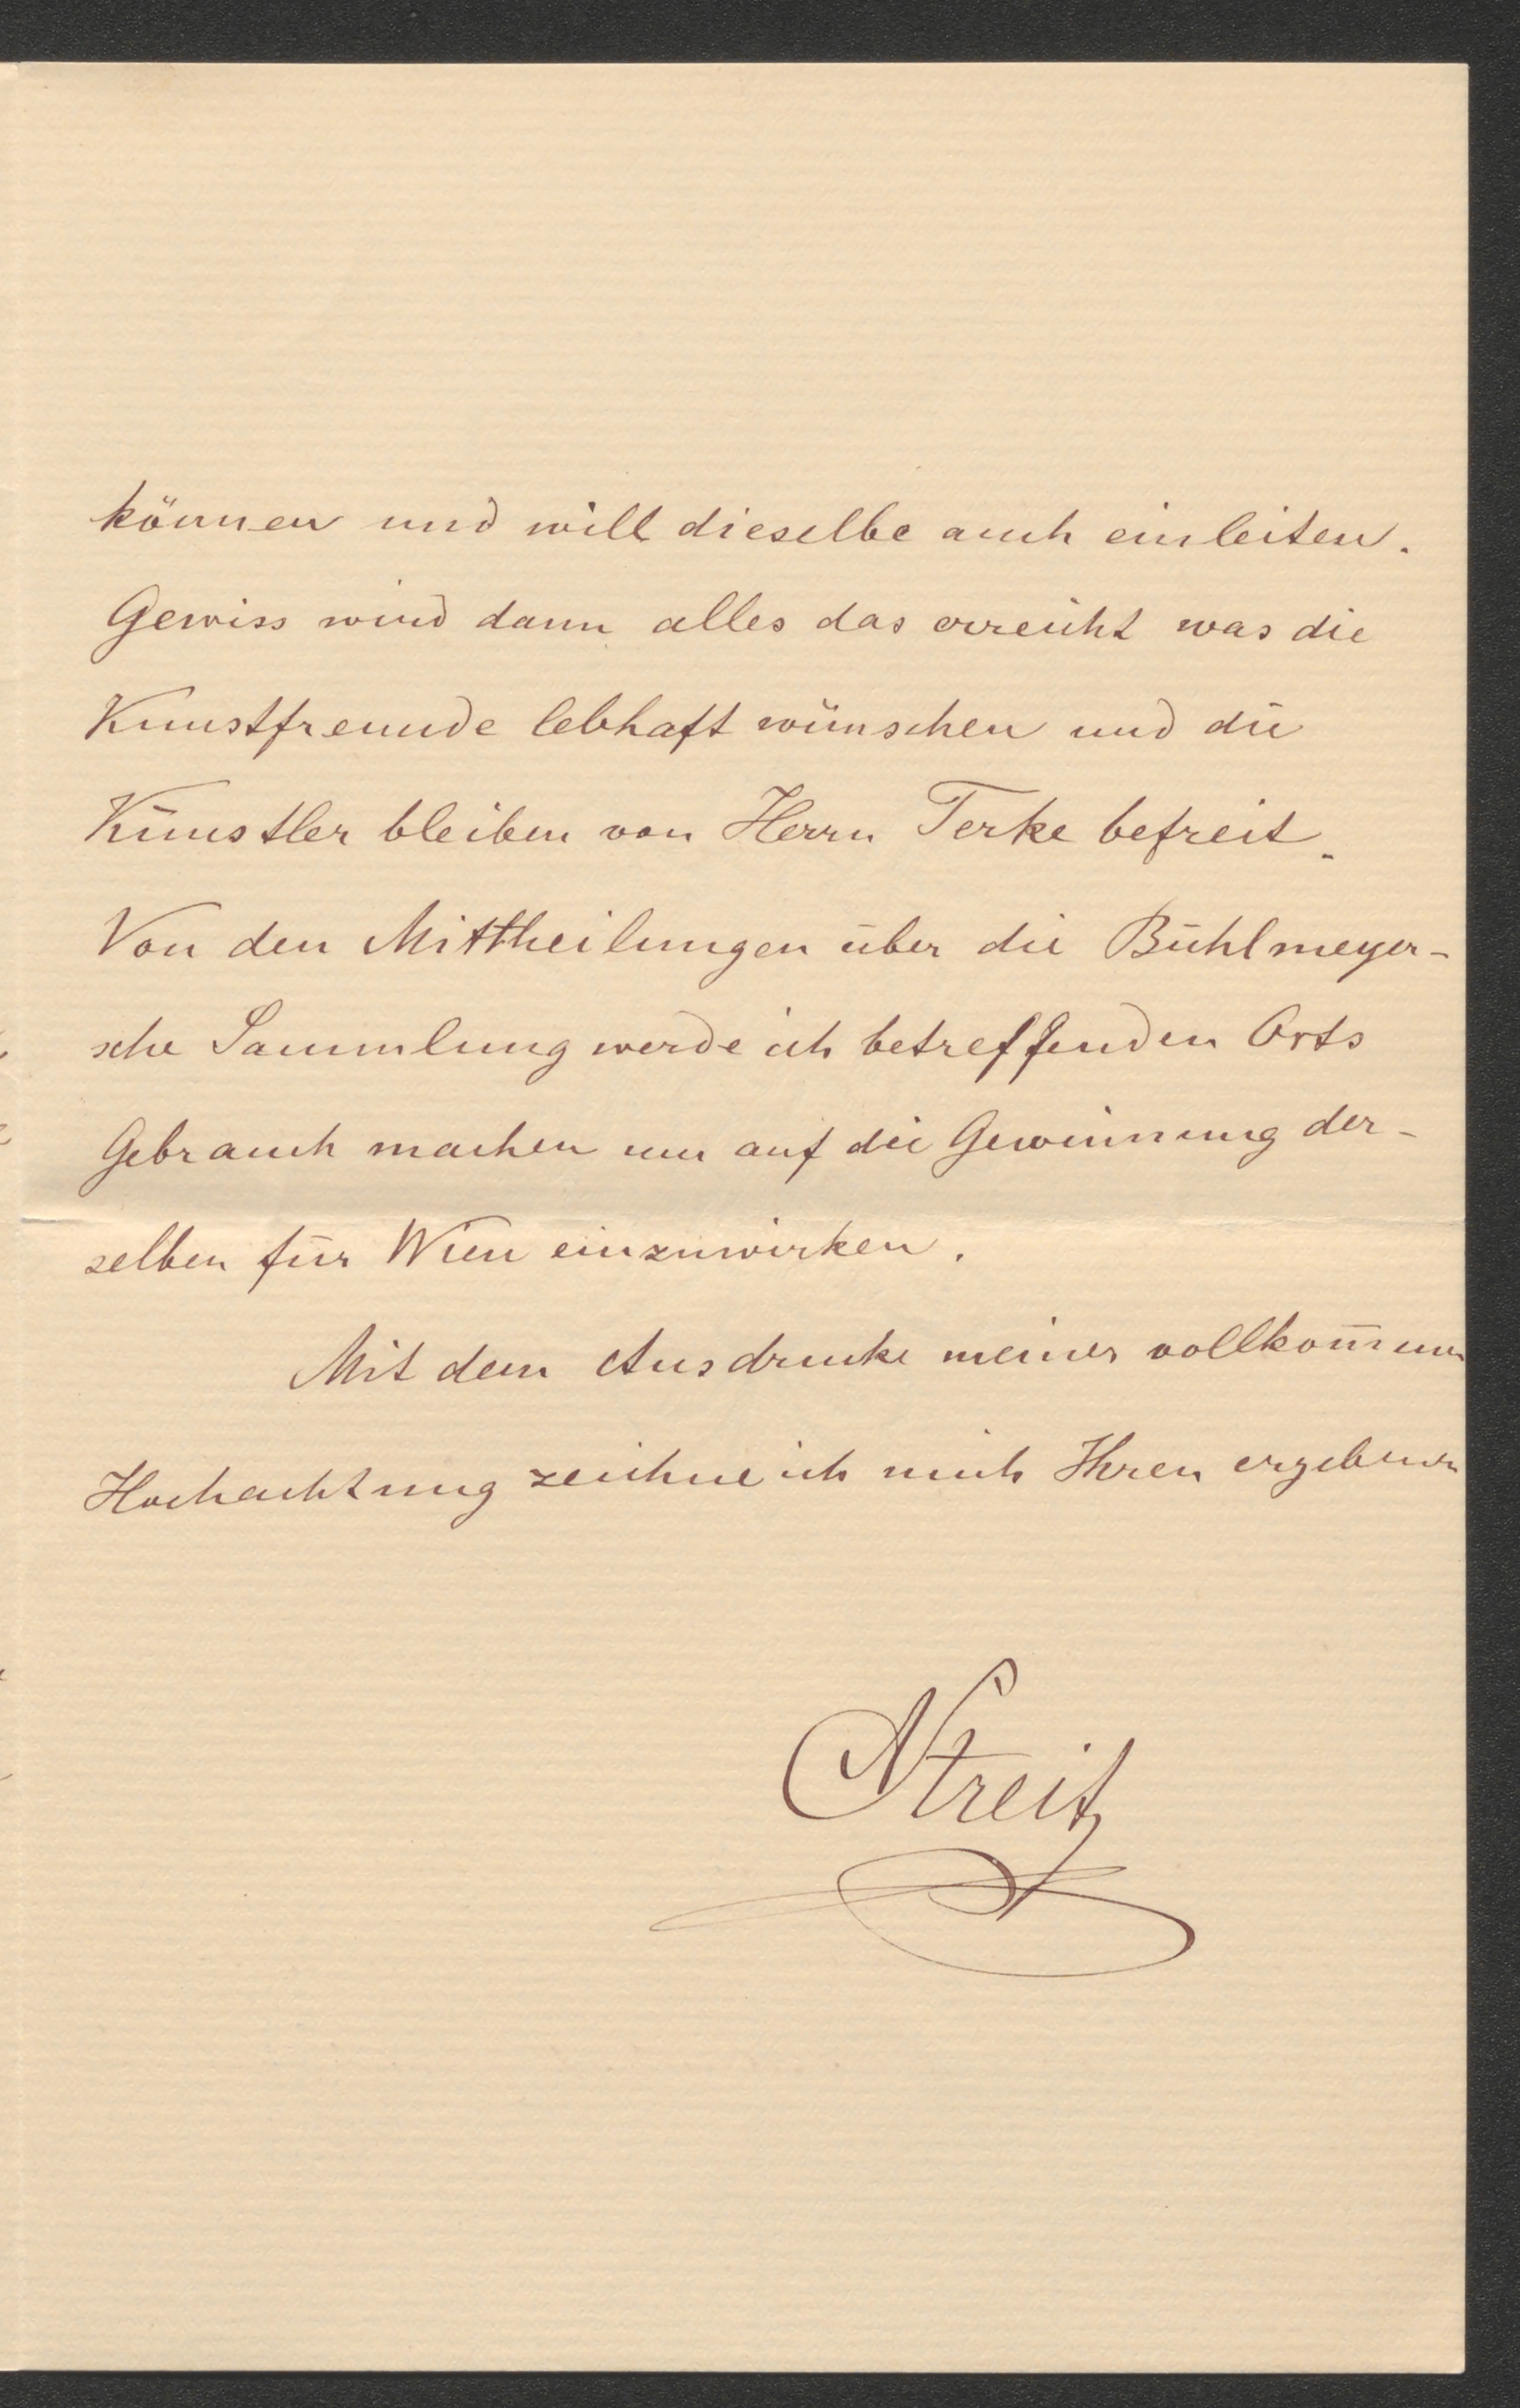 können und will dieselbe auch einleiten.
Gewiss wird dann alles das erreicht was die
Kunstfreunde lebhaft wünschen und die
Künstler bleiben von Herrn Terke befreit.
Von den Mittheilungen über die Bühlmeyer-
sche Sammlung werde ich betreffenden Orts
Gebrauch machen um auf die Gewinnung der-
selben für Wien einzuwirken.
Mit dem Ausdrucke meiner vollkom̅enen
Hochachtung zeichne ich mich Ihren ergebenen
Streit